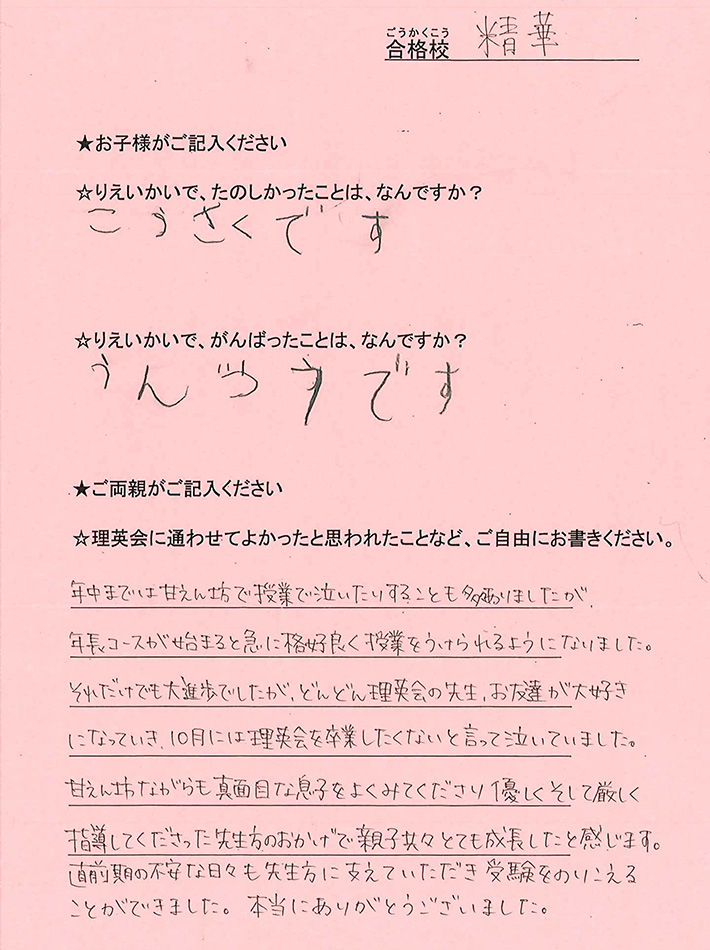 ごうかくこう
合格校 精華
★お子様がご記入ください
☆りえいかいで、たのしかったことは、なんですか？
こうさくです
☆りえいかいで、がんばったことは、なんですか？
うんどうです
★ご両親がご記入ください
☆理英会に通わせてよかったと思われたことなど、ご自由にお書きください。
年中までは甘えん坊で授業で泣いたりすることも多々ありましたが、
年長コースが始まると急に格好良く授業をうけられるようになりました。
それだけでも大進歩でしたが、どんどん理英会の先生、お友達が大好き
になっていき、10月には理英会を卒業したくないと言って泣いていました。
甘えん坊ながらも真面目な息子をよくみてくださり優しくそして厳しく
指導してくださった先生方のおかげで親子共々とても成長したと感じます。
直前期の不安な日々も先生方に支えていただき受験をのりこえる
ことができました。本当にありがとうございました。